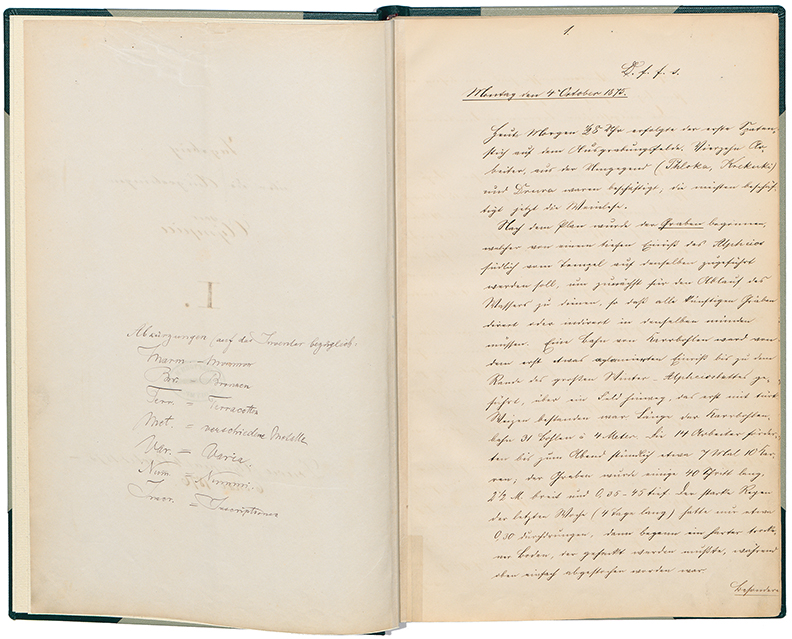 Abkürzungen (auf das Inventar bezüglich.
Marm = Marmor
Br. = Bronzen
Terr. = Terracotta
Met. = verschiedene Metalle
Var. = Varia.
Num = Nummi.
Inscr. = Inscriptiones
1.
Q. f. f. s.
Montag den 4t October 1875.
Heute Morgen ½8 Uhr erfolgte der erste Spaten-
stich auf dem Ausgrabungsfelde. Vierzehn Ar-
beiter, aus der Umgegend (Phloka, Krekuki)
und Druva waren beschäftigt, die meisten beschäf-
tigt jetzt die Weinlese.
Nach dem Plan wurde der Graben begonnen,
welcher von einem tiefen Einriß des Alpheios
südlich vom Tempel auf denselben zugeführt
werden soll, um zunächst für den Ablauf des
Wassers zu dienen, so daß alle künftigen Gräben
direct oder indirect in denselben münden
müssen. Eine Bahn von Karrbohlen ward von
dem erst etwas Einriß bis zu dem
Rande des großen Winter-Alpheiosbettes ge-
führt, über ein Feld hinweg, das erst mit
Weizen bestanden war. Länge der Karrbohlen-
bahn 31 Bohlen à 4 Meter. Die 14 Arbeiter förder-
ten bis zum Abend stündlich etwa 7 Mal 10 Kar-
ren, der Graben wurde einige 40 Schritt lang,
2½ M. breit und 0,35-45 tief. Der starke Regen
der letzten Woche (4 Tage lang) hatte nur etwa
0,30 durchdrungen, dann begann ein harter trocke-
ner Boden, der gehackt werden mußte, während
oben einfach abgestochen worden war.
Besondere